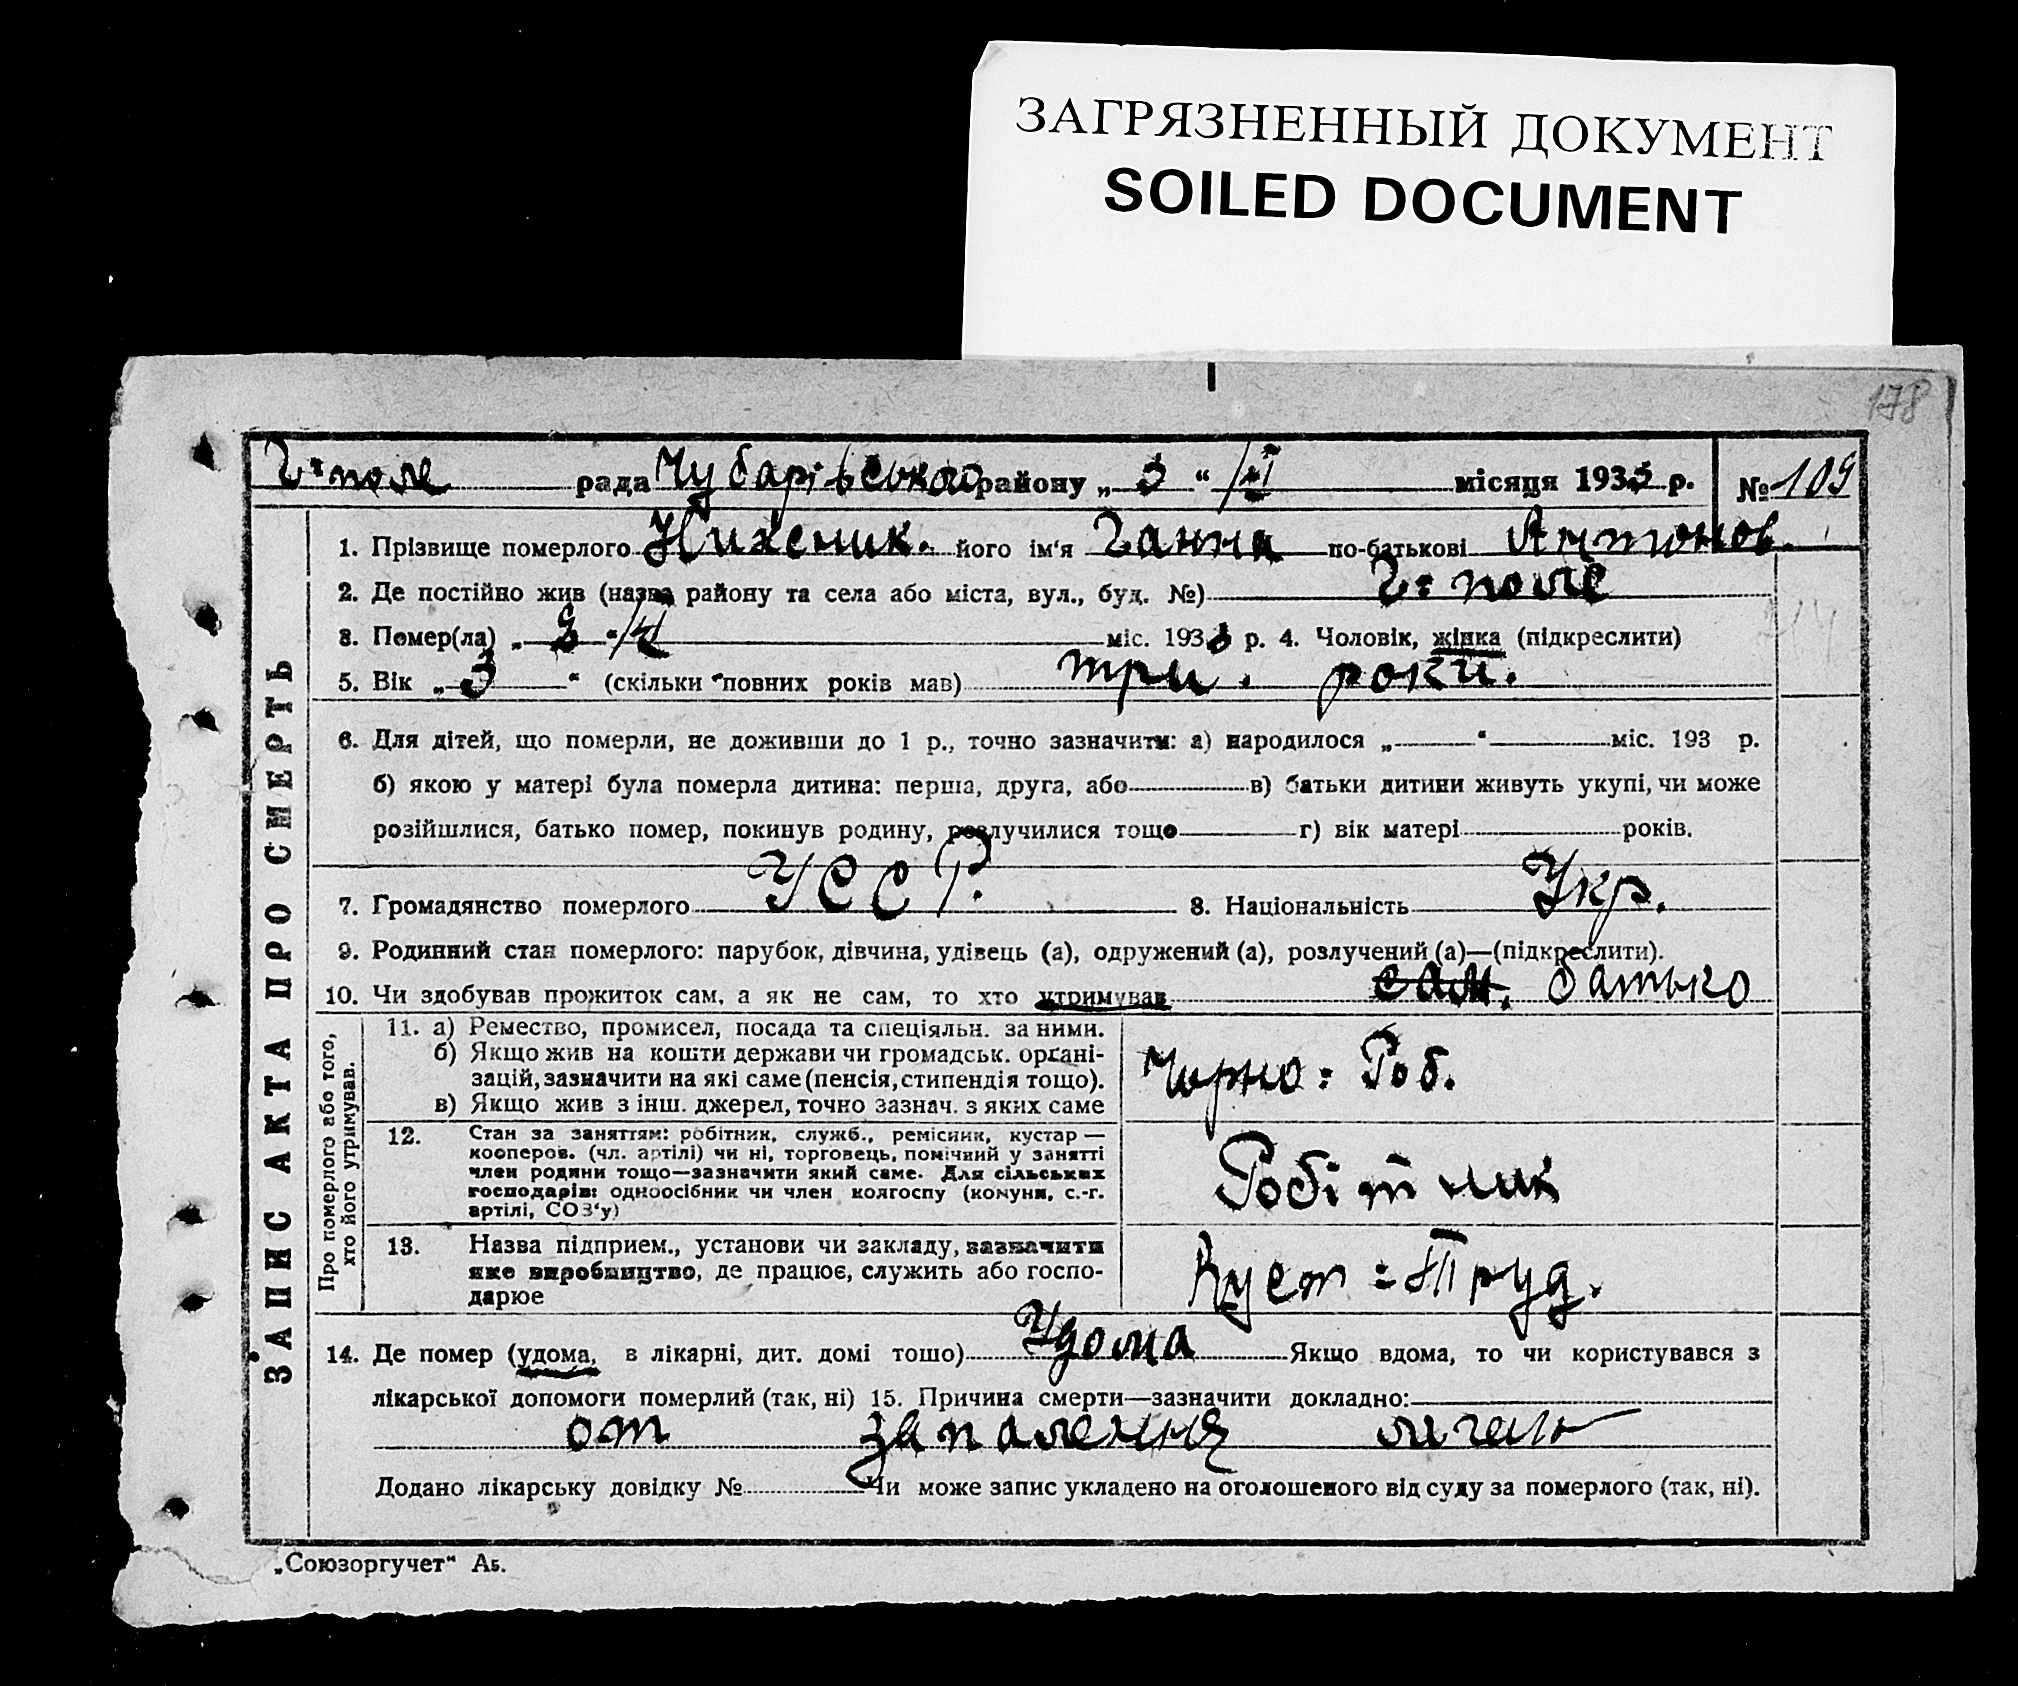 ЗАГРЯЗНЕННЫЙ ДОКУМЕНТ
SOILED DOCUMENT
178
Г=поле рада Чубарівського району „ 3 “ місяця 1933 р. № 109
ЗАПИС АКТА ПРО СМЕРТЬ
1. Прізвище померлого Нижсник. його ім‘я Ганна по-батькові Антонов.
2. Де постійно жив (назва району та села або міста, вул., буд. №) Г=поле
3. Помер(ла) „ “ міс. 1933 р. 4. Чоловік, жінка (підкреслити)
5. Вік „ 3 “ (скільки повних років мав) три. роки.
6. Для дітей, що померли, не доживши до 1 р., точно зазначити: а) народилося „ “ міс. 193 р.
б) якою у матері була померла дитина: перша, друга, або в) батьки дитини живуть укупі, чи може
розійшлися, батько помер, покинув родину, розлучилися тощо г) вік матері років.
7. Громадянство померлого УССР. 8. Національність Укр.
9. Родинний стан померлого: парубок, дівчина, удівець (а), одружений (а), розлучений (а)—(підкреслити).
10. Чи здобував прожиток сам, а як не сам, то хто утримував сам. батько
Про померлого або того,
хто його утримував.
11. а) Ремество, промисел, посада та спеціяльн. за ними.
б) Якщо жив на кошти держави чи громадськ. органі-
зацій, зазначити на які саме (пенсія, стипендія тощо).
в) Якщо жив з інш. джерел, точно зазнач. з яких саме
Чорно: Роб.
12. Стан за заняттям: робітник, служб., ремісник, кустар —
кооперов. (чл. артілі) чи ні, торговець, помічний у занятті
член родини тощо—зазначити який саме. Для сільських
господарів: одноосібник чи член колгоспу (комуни, с.-г.
артілі, СОЗ‘у)
Робітник
13. Назва підприєм., установи чи закладу, зазначити
яке виробництво, де працює, служить або госпо-
дарює
Куст=Труд.
14. Де помер (удома, в лікарні, дит. домі тощо) Удома Якщо вдома, то чи користувався з
лікарської допомоги померлий (так, ні) 15. Причина смерти—зазначити докладно:
от запалення
Додано лікарську довідку № Чи може запис укладено на оголошеного від суду за померлого (так, ні).
„Союзоргучет“ Аб.